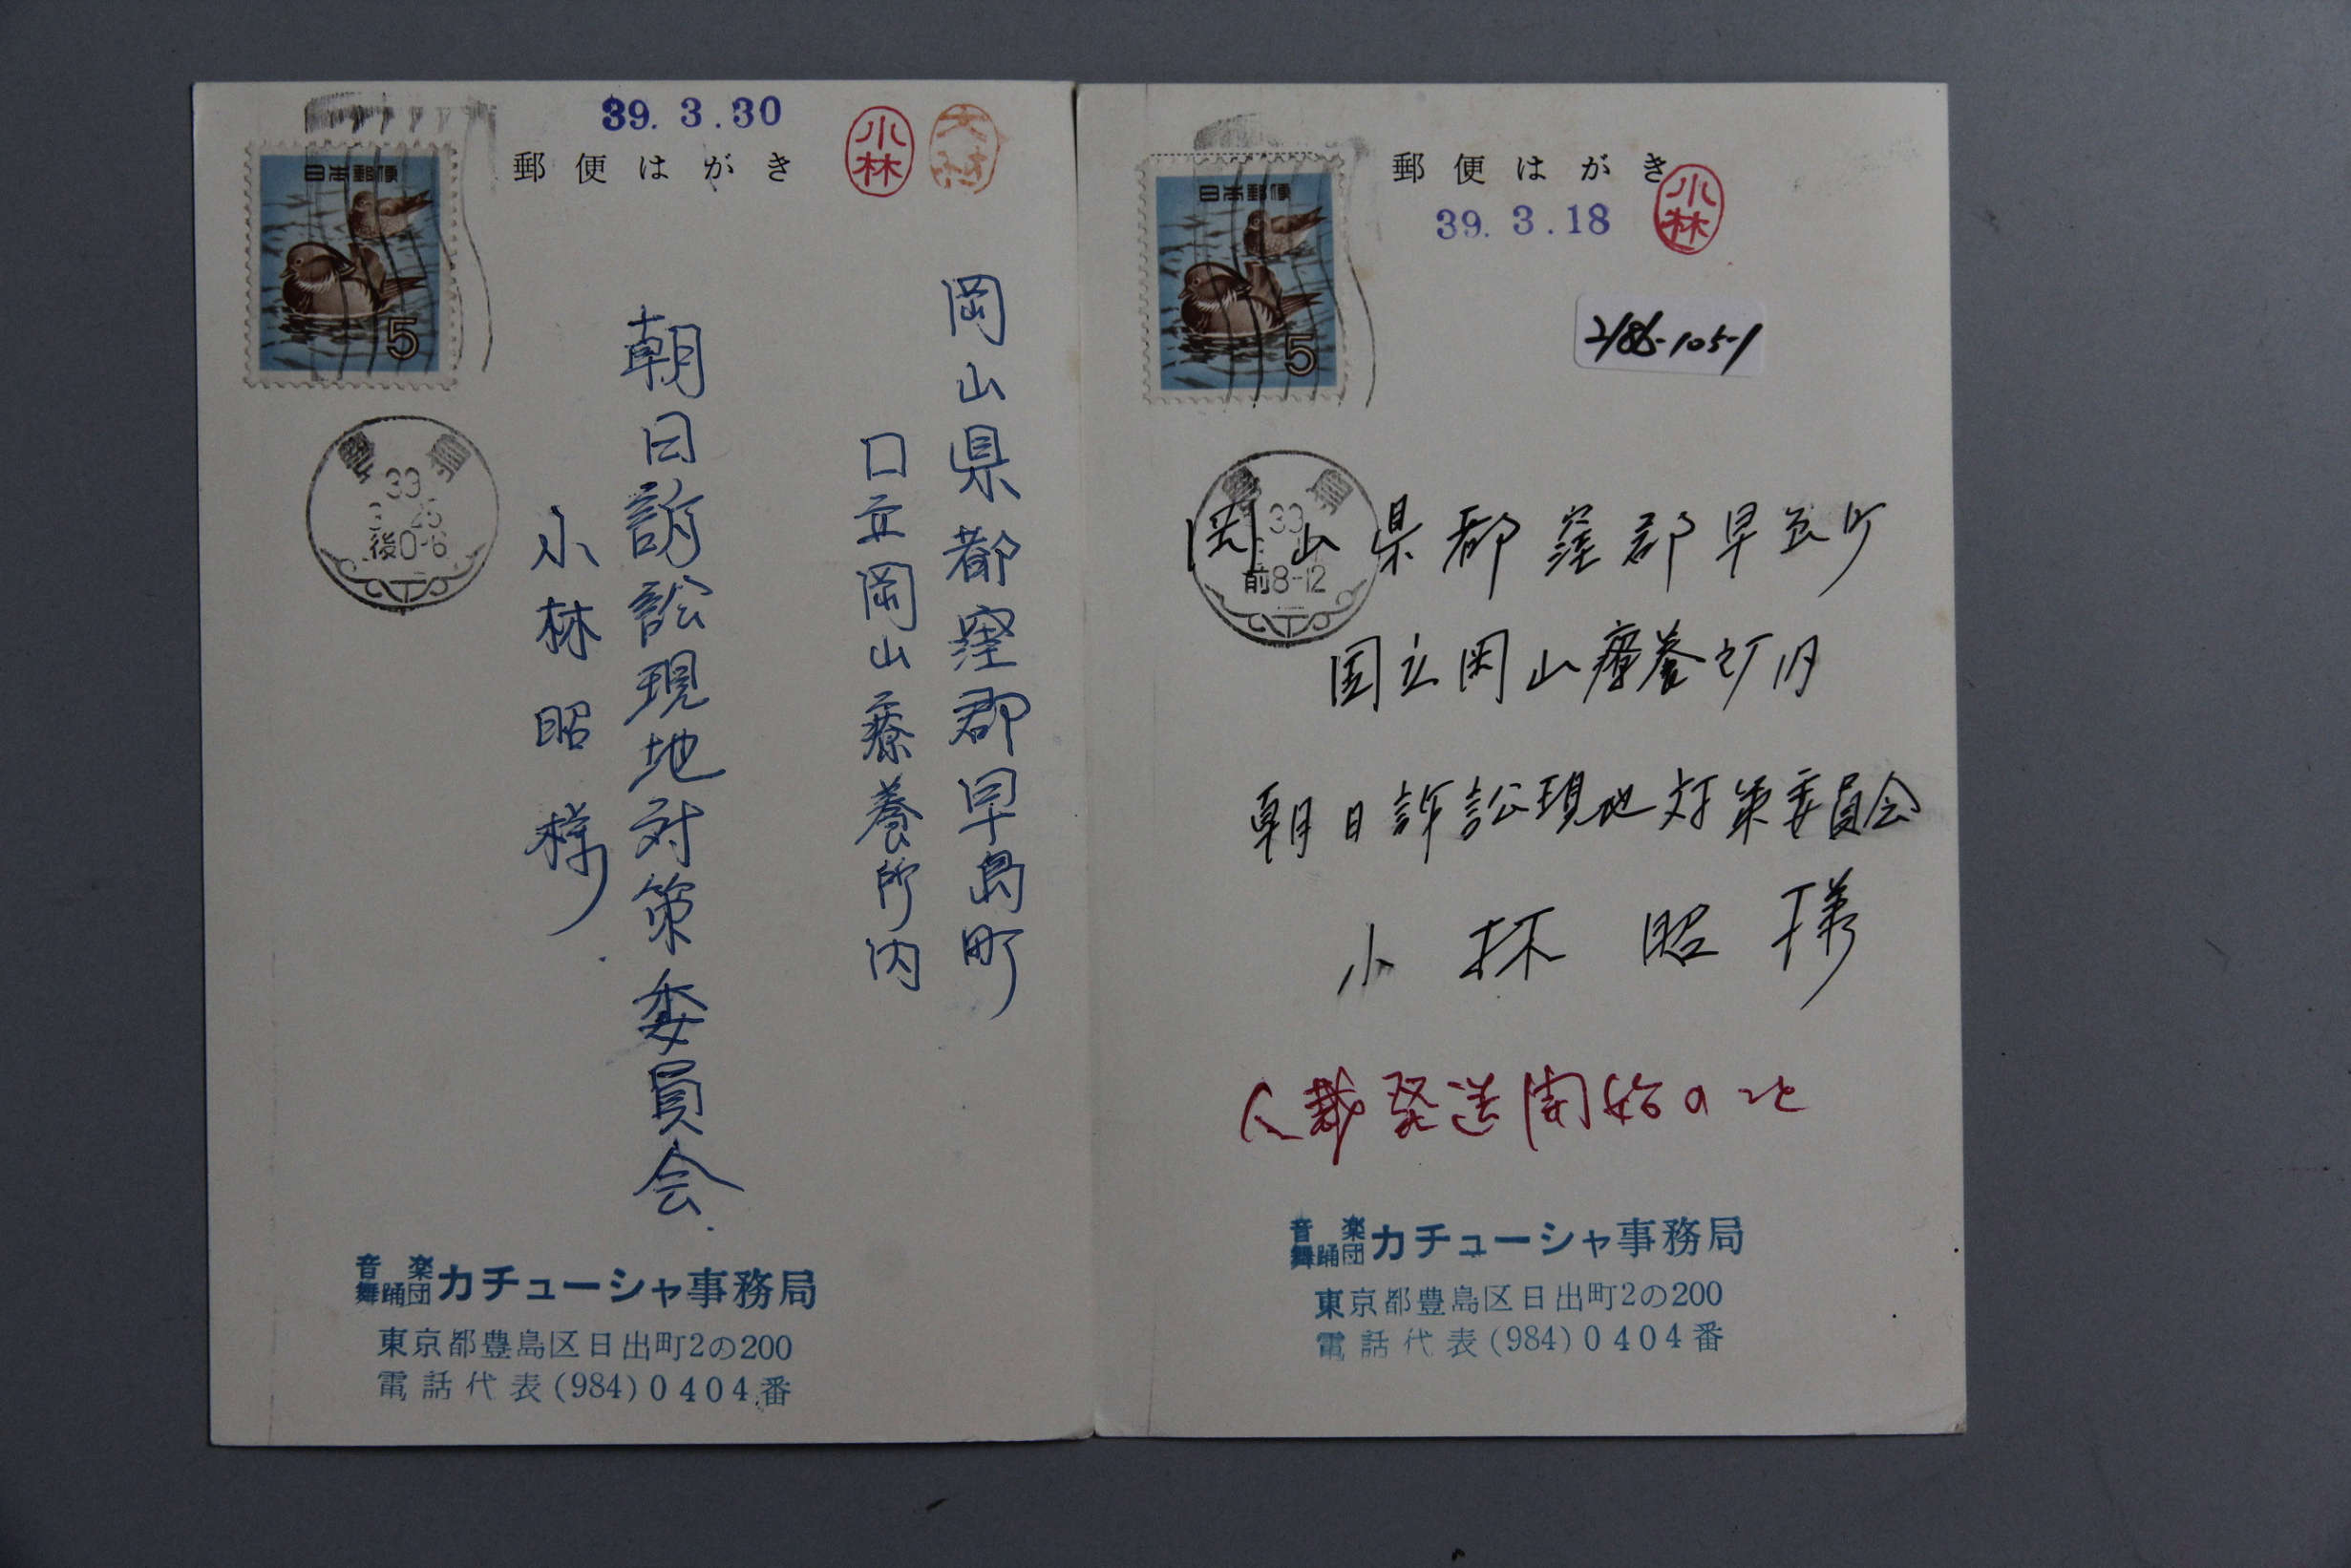 39.3.30
郵便はがき
小林
日本郵便
5
39
3 25
後0-6
岡山県都窪郡早島町
口立岡山療養所内
朝日訴訟現地対策委員会
小林昭様
音楽舞踊団カチューシャ事務局
東京都豊島区日出町2の200
電話代表(984)0404番
郵便はがき
39.3.18
小林
日本郵便
5
2186-105-1
39
前8-12
岡山県都窪郡早島町
国立岡山療養所内
朝日訴訟現地対策委員会
小林昭様
人裁発送開始のこと
音楽舞踊団カチューシャ事務局
東京都豊島区日出町2の200
電話代表(984)0404番